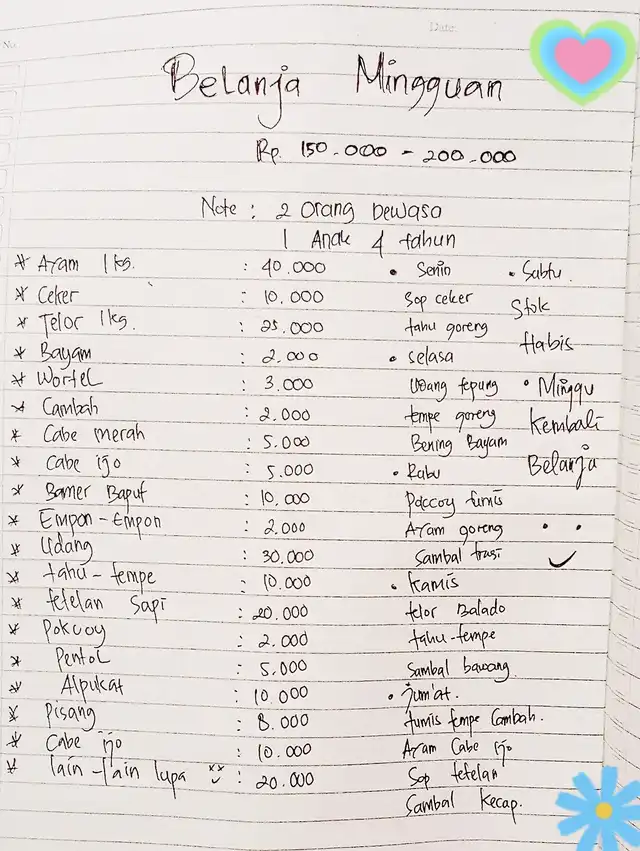 No.
Date
Belanja Mingguan
Rp. 150.000 - 200.000
Note : 2 Orang Dewasa
1 Anak 4 tahun
* Ayam 1 kg. : 40.000
* Ceker : 10.000
* Telor 1 kg. : 25.000
* Bayam : 2.000
* Wortel : 3.000
* Cambah : 2.000
* Cabe merah : 5.000
* Cabe ijo : 5.000
* Bamer Baput : 10.000
* Empon-Empon : 2.000
* Udang : 30.000
* tahu-tempe : 10.000
* tetelan sapi : 20.000
* Pokcoy : 2.000
* Pentol : 5.000
* Alpukat : 10.000
* Pisang : 8.000
* Cabe ijo : 10.000
* lain-lain lupa : 20.000
• Senin
Sop ceker
tahu goreng
• selasa
Udang tepung
tempe goreng
Bening Bayam
• Rabu
Paccoy tumis
Ayam goreng
Sambal trasi
• Kamis
telor Balado
tahu-tempe
Sambal bawang
• Jum'at.
tumis tempe Cambah.
Ayam Cabe ijo
Sop tetelan
Sambal kecap.
• Sabtu
Stok
Habis
• Minggu
Kembali
Belanja